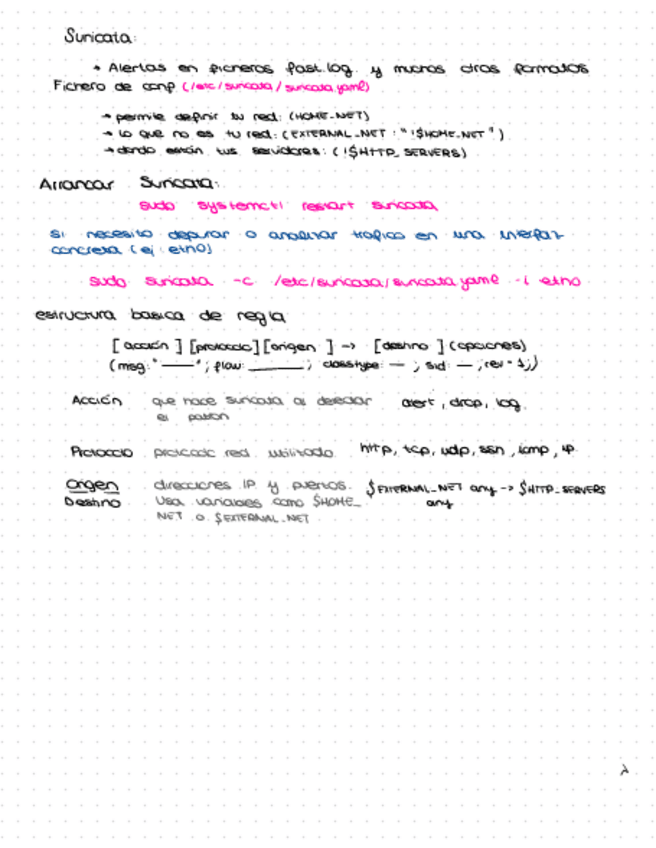 Suricata:
→ Alertas en ficheros fast.log y muchos otros formatos
Fichero de conf (/etc/suricata/suricata.yaml)
→ permite definir tu red: (HOME_NET)
→ lo que no es tu red: (EXTERNAL_NET : "!$HOME_NET")
→ donde están tus servidores: (!$HTTP_SERVERS)
Arrancar Suricata:
sudo systemctl restart suricata
si necesito depurar o analizar trafico en una interfaz
concreta (ej eth0)
sudo suricata -c /etc/suricata/suricata.yaml -i eth0
estructura basica de regla
[acción] [protocolo] [origen] -> [destino] (opciones)
(msg:"——"; flow:______; classtype: — ; sid: — ; rev = 1;)
Acción que hace suricata al detectar alert, drop, log.
el patron
Protocolo protocolo red utilizado. http, tcp, udp, ssh, icmp, ip.
Origen direcciones IP y puertos. $EXTERNAL_NET any -> $HTTP_SERVERS
Destino Usa variables como $HOME_ any
NET o $EXTERNAL_NET